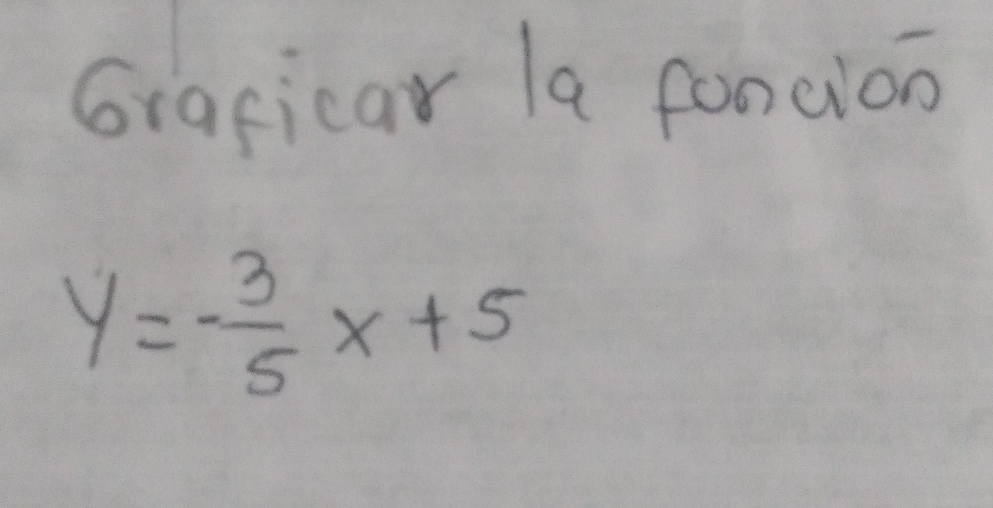 Graficar la función
y = -3/5 x + 5